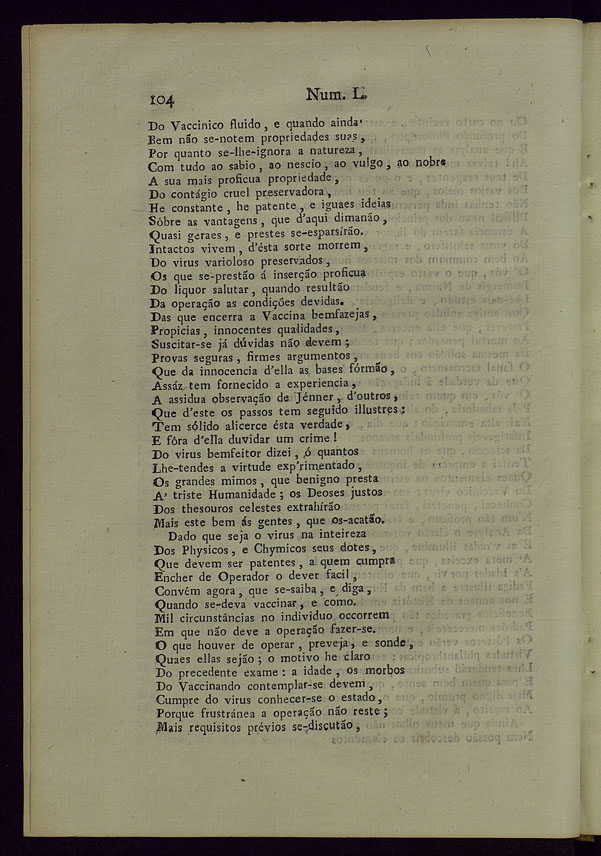 104 Num. L.
Do Vaccinico fluido, e quando ainda
Bem não se-notem propriedades suas,
Por quanto se-lhe-ignora a natureza,
Com tudo ao sabio, ao nescio, ao vulgo, ao nobre
A sua mais proficua propriedade,
Do contágio cruel preservadora,
He constante, he patente, e iguaes ideias
Sôbre as vantagens, que d'aqui dimanão,
Quasi geraes, e prestes se-esparsírão.
Intactos vivem, d'ésta sorte morrem,
Do virus varioloso preservados,
Os que se-prestão á inserção proficua
Do liquor salutar, quando resultão
Da operação as condições devidas.
Das que encerra a Vaccina bemfazejas,
Propicias, innocentes qualidades,
Suscitar-se já dúvidas não devem;
Provas seguras, firmes argumentos,
Que da innocencia d'ella as bases fórmão,
Assáz tem fornecido a experiencia,
A assidua observação de Jénner, d'outros,
Que d'este os passos tem seguido illustres:
Tem sólido alicerce ésta verdade,
E fôra d'ella duvidar um crime!
Do virus bemfeitor dizei, ó quantos
Lhe-tendes a virtude exp'rimentado,
Os grandes mimos, que benigno presta
A' triste Humanidade; os Deoses justos
Dos thesouros celestes extrahírão
Mais este bem ás gentes, que os-acatão.
Dado que seja o virus na inteireza
Dos Physicos, e Chymicos seus dotes,
Que devem ser patentes, a quem cumpra
Encher de Operador o dever facil,
Convém agora, que se-saiba, e diga,
Quando se-deva vaccinar, e como.
Mil circunstâncias no individuo occorrem
Em que não deve a operação fazer-se.
O que houver de operar, preveja, e sonde,
Quaes ellas sejão; o motivo he claro
Do precedente exame: a idade, os morbos
Do Vaccinando contemplar-se devem,
Cumpre do virus conhecer-se o estado,
Porque frustránea a operação não reste;
Mais requisitos prévios se-discutão,